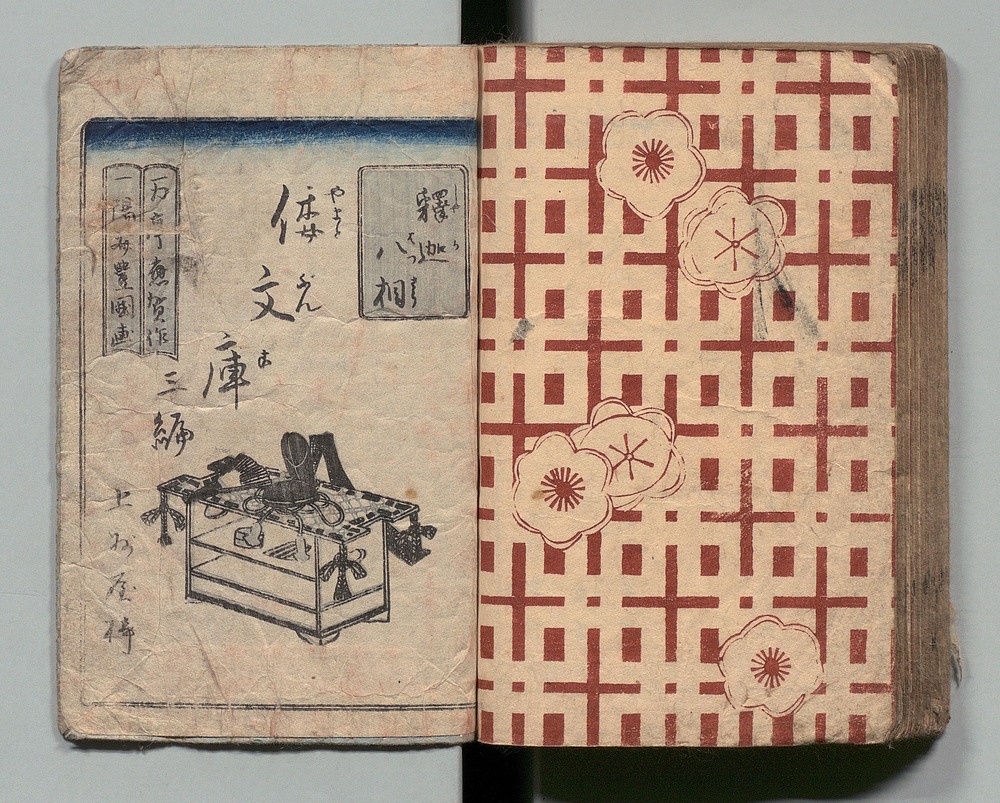 釋迦
八相
倭文庫
三編
万亭應賀作
一陽斎豊國画
上州屋梓